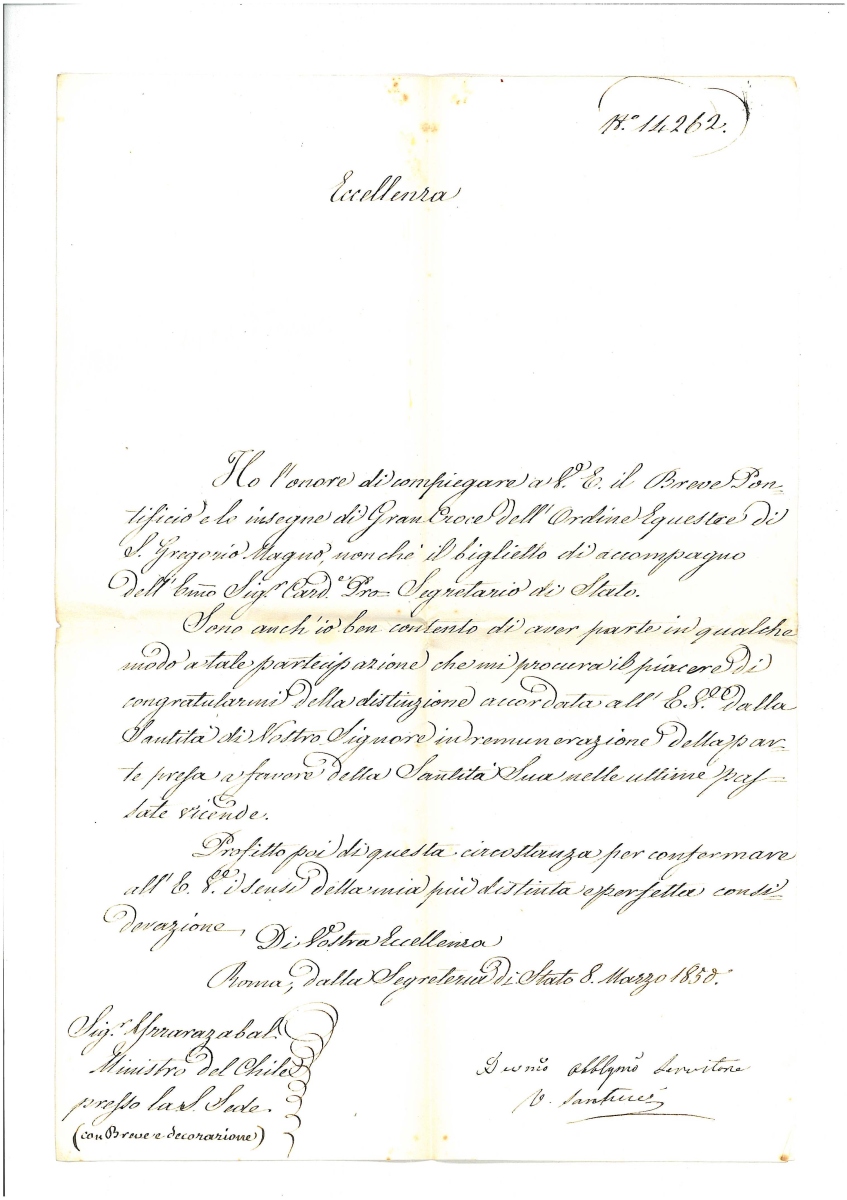 N.° 14262.
Eccellenza
Ho l'onore di compiegare a V.ª E. il Breve Pon-
tificio e le insegne di Gran Croce dell'Ordine Equestre di
S. Gregorio Magno, nonchè il biglietto di accompagno
dell'Emõ Sig.r Card.e Pro-Segretario di Stato.
Sono anch'io ben contento di aver parte in qualche
modo a tale partecipazione che mi procura il piacere di
congratularmi della distinzione accordata all'E. V.ª dalla
Santità di Nostro Signore in remunerazione della par-
te presa a favore della Santità Sua nelle ultime pas-
sate vicende.
Profitto poi di questa circostanza per confermare
all'E. V.ª i sensi della mia più distinta e perfetta consi-
derazione
Di Vostra Eccellenza
Roma, dalla Segreteria di Stato 8. Marzo 1850.
Sig.r Yrrarazabal.
Ministro del Chile
presso la S. Sede.
(con Breve e decorazione)
Devmõ Obblgmõ Servitore
V. Santucci